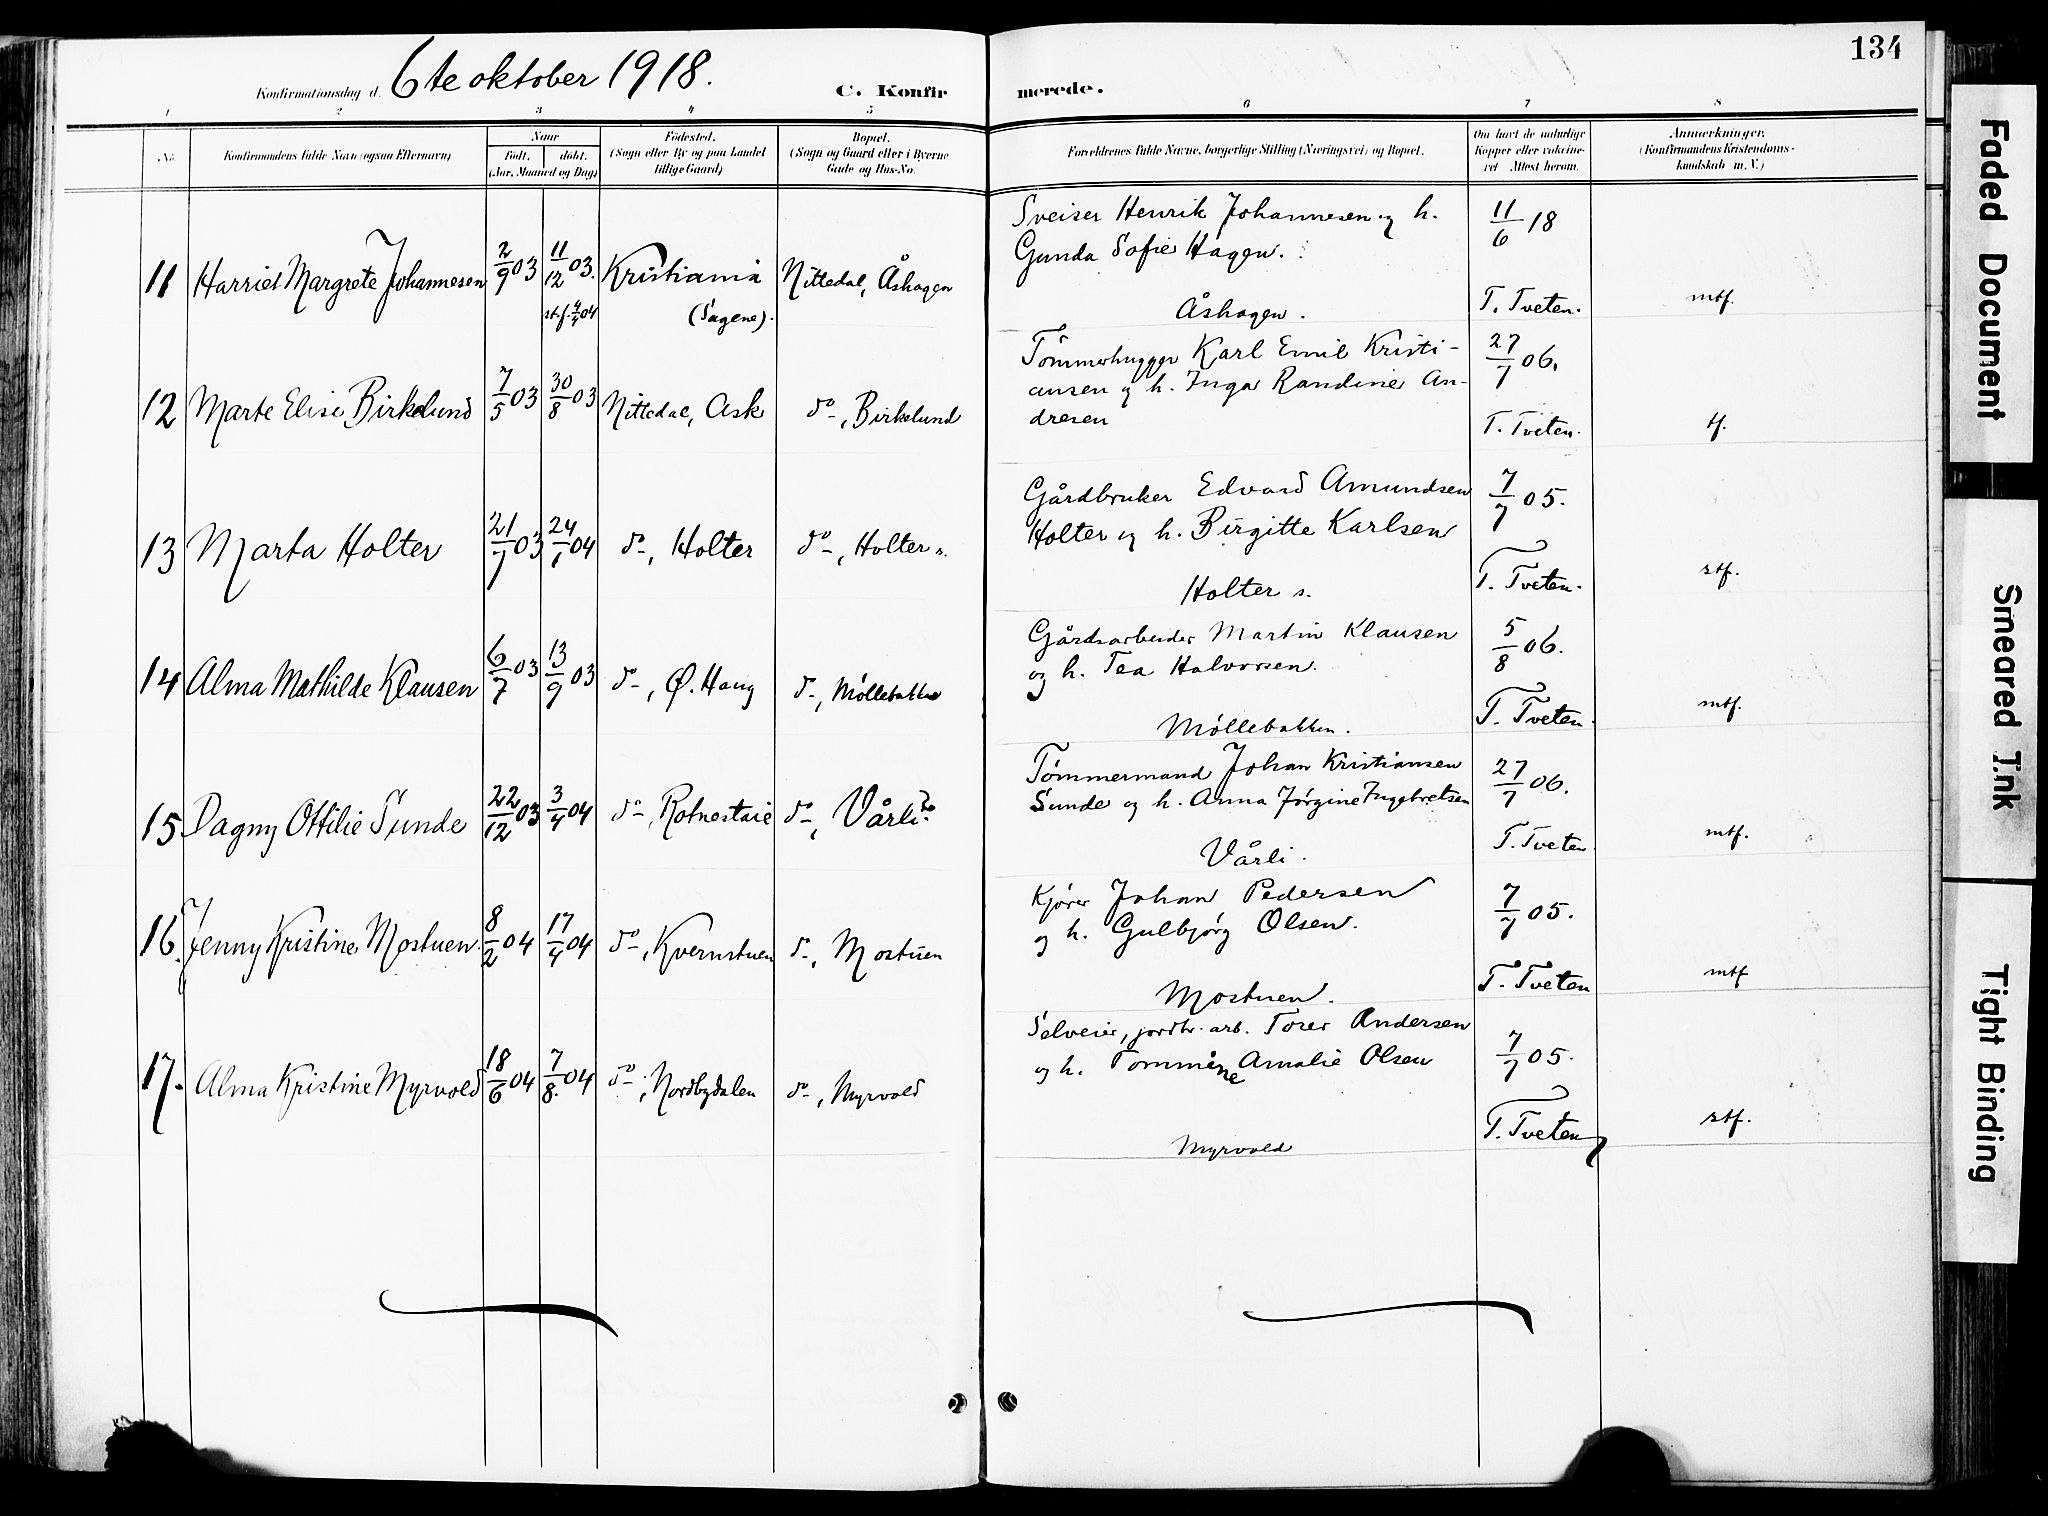 134
Konfirmationsdag d. 6te oktober 1918.
C. Konfirmerede.
1 2 3 4 5 6 7 8
No. Konfirmandens fulde Navn (ogsaa Efternavn)
Naar
født. døbt.
(Aar, Maaned og Dag)
Fødested.
(Sogn eller By og paa Landet
tillige Gaard)
Bopæl.
(Sogn og Gaard eller i Byerne
Gade og Hus-No.
Forældrenes fulde Navne, borgerlige Stilling (Næringsvei) og Bopæl.
Om havt de naturlige
Kopper eller vaccine-
ret Attest herom.
Anmærkninger.
(Konfirmandens Kristendoms-
kundskab m. V.)
11 Harriet Margrete Johannesen 2/9 03 11/12 03. Kristiania Nittedal, Åshagen
st.f. 4/4 04 (Sagene).
Sveiser Henrik Johannesen og h. 11/6 18
Gunda Sofie Hagen.
Åshagen. T. Tveten. mtf.
12 Marte Elise Birkelund 7/5 03 30/8 03 Nittedal, Ask do, Birkelund
Tømmerhugger Karl Emil Kristi- 27/7 06.
ansen og h. Inga Randine An-
dresen T. Tveten. tf.
13 Marta Holter 21/7 03 24/1 04 do, Holter do, Holter s.
Gårdbruker Edvard Amundsen 7/7 05.
Holter og h. Birgitte Karlsen
Holter s. T. Tveten. stf.
14 Alma Mathilde Klausen 6/7 03 13/9 03 do, Ø. Haug do, Møllebakken
Gårdsarbeider Martin Klausen 5/8 06.
og h. Tea Halvorsen.
Møllebakken. T. Tveten. mtf.
15 Dagny Ottilie Sunde 22/12 03 3/4 04 do, Rotnestaie do, Vårli
Tømmermand Johan Kristiansen 27/7 06.
Sunde og h. Anna Jørgine Ingebretsen
Vårli. T. Tveten. mtf.
16. Jenny Kristine Mostuen. 8/2 04 17/4 04 do, Kvernstuen do, Mostuen
Kjører Johan Pedersen 7/7 05.
og h. Gulbjørg Olsen.
Mostuen. T. Tveten mtf
17. Alma Kristine Myrvold 18/6 04 7/8. 04 do, Nordbydalen do, Myrvold
Selveier, jordbr. arb. Torer Andersen 7/7 05.
og h. Tommine Amalie Olsen
Myrvold T. Tveten stf.
Faded Document
Smeared Ink
Tight Binding